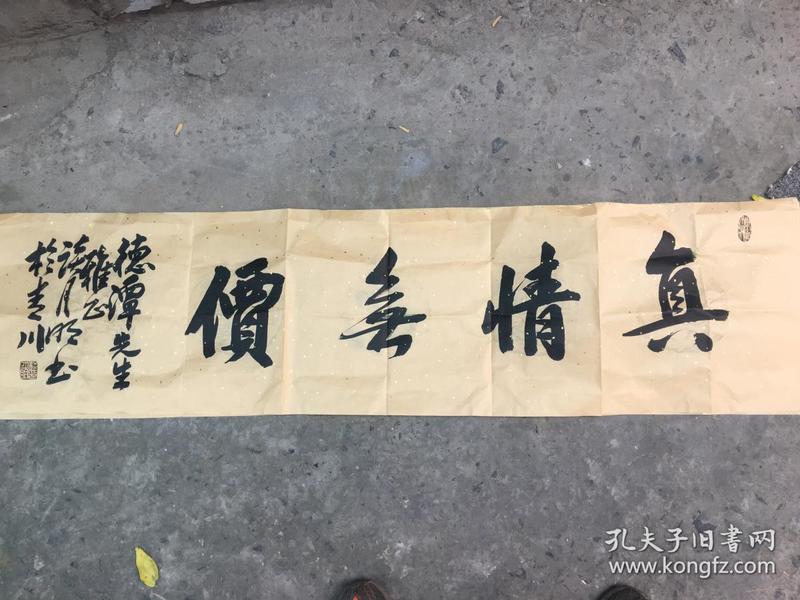 真情無價
德潭先生
雅正
月明书
於青川
孔夫子旧书网
www.kongfz.com